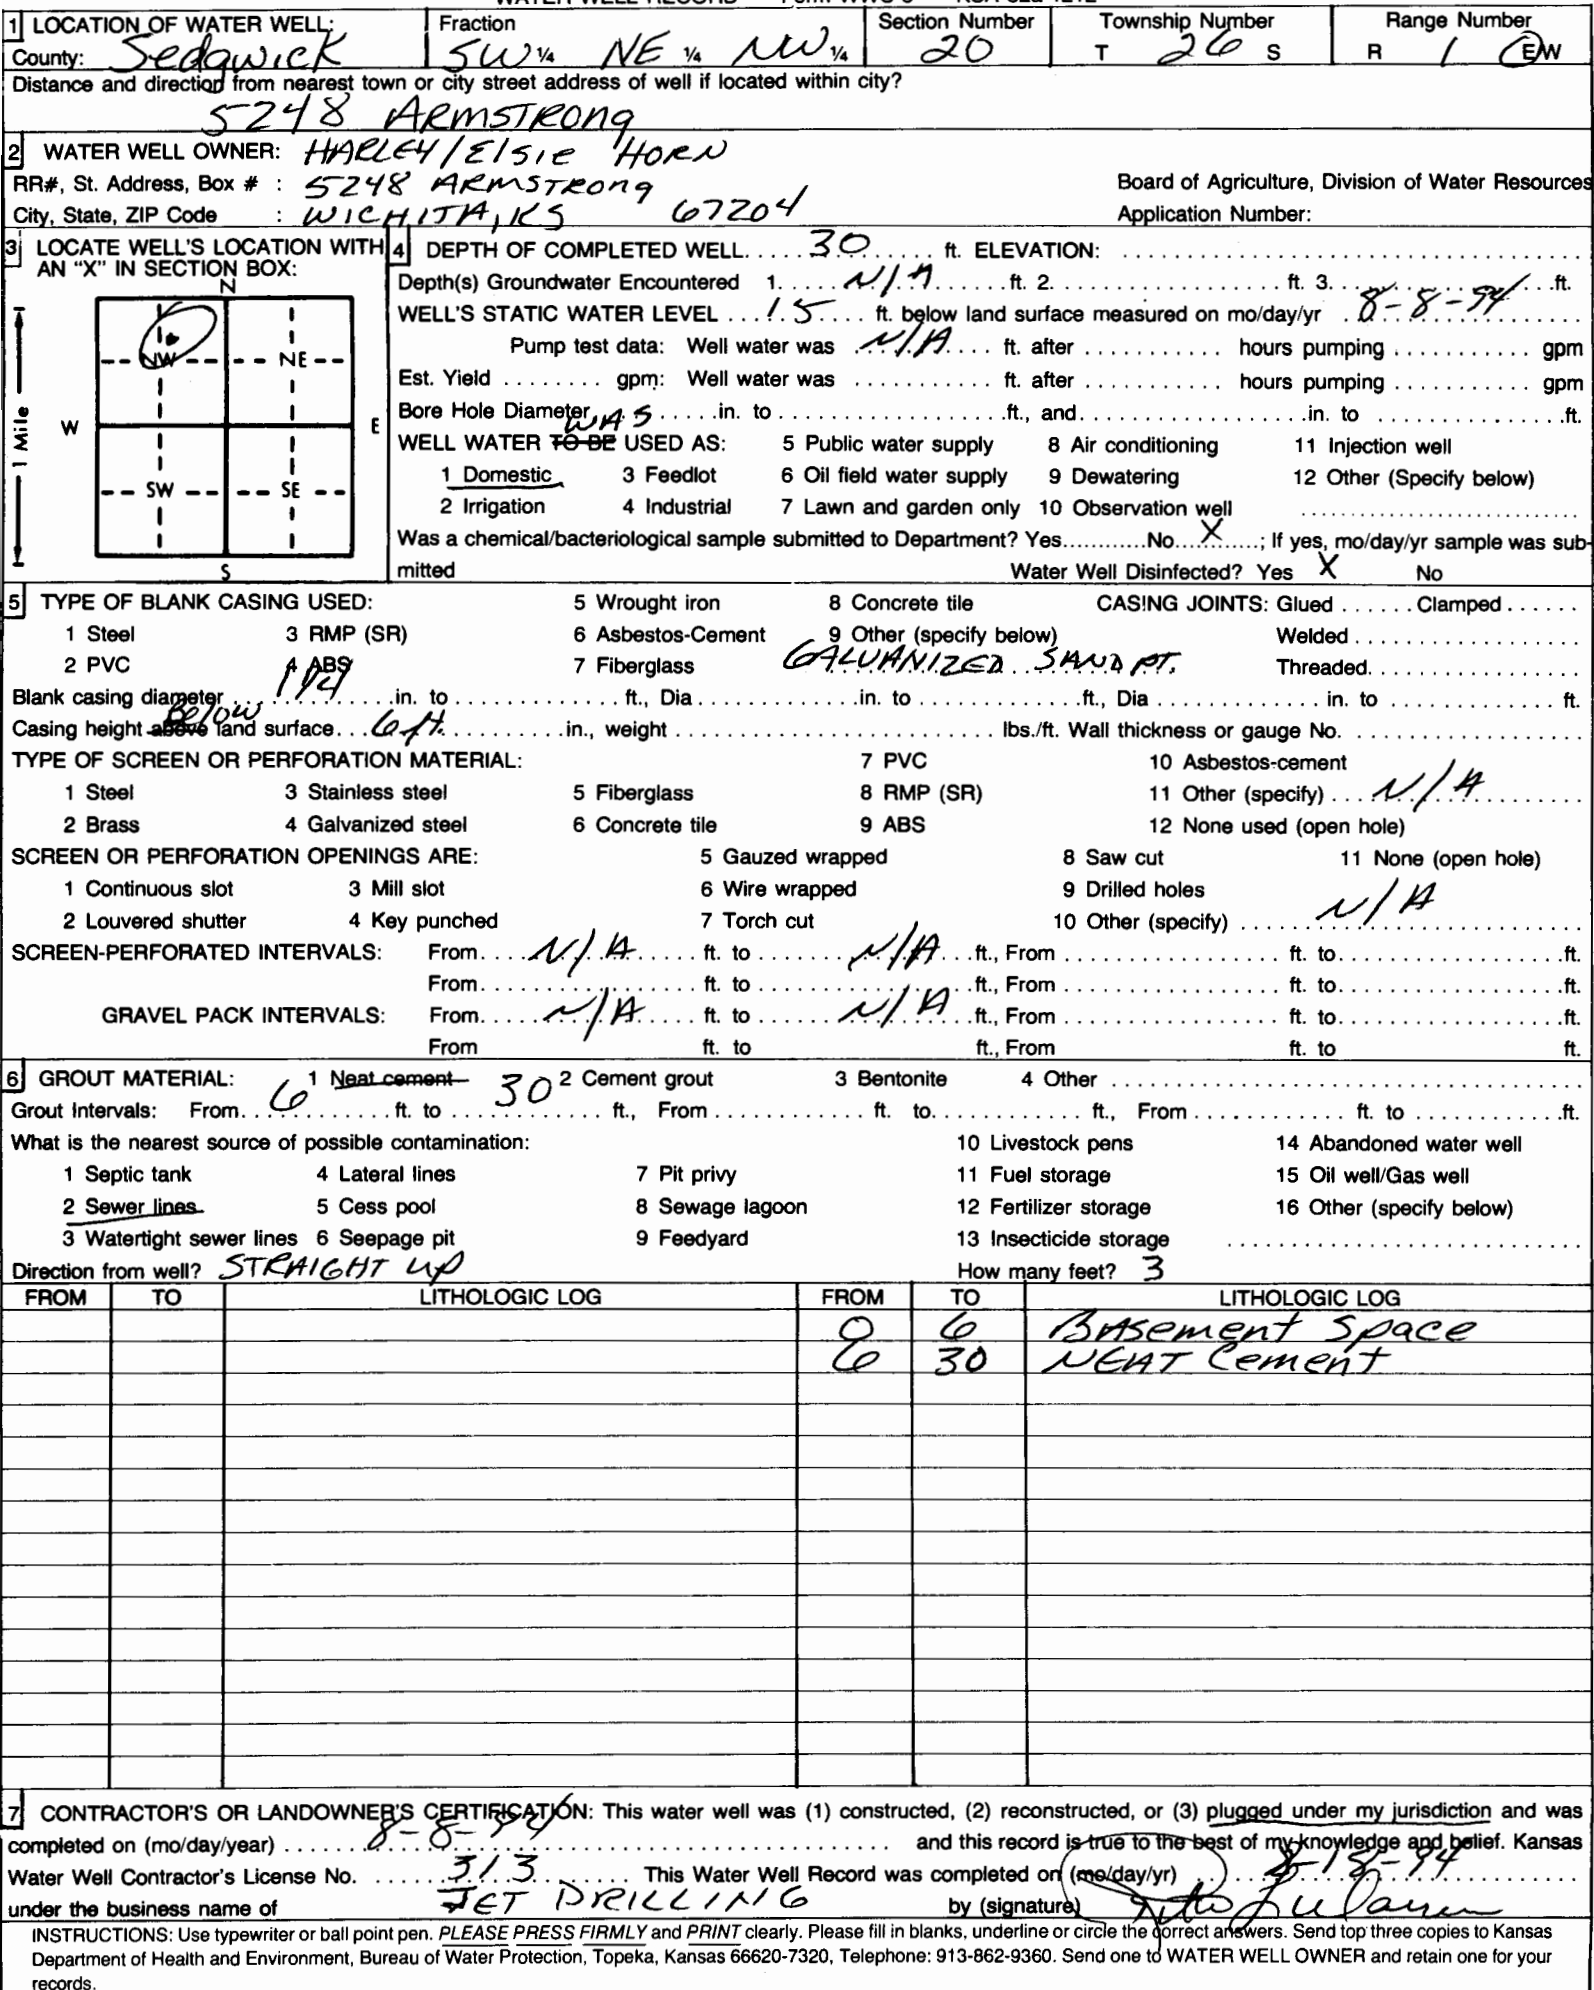 1 LOCATION OF WATER WELL: Fraction Section Number Township Number Range Number
County: Sedgwick SW ¼ NE ¼ NW ¼ 20 T 26 S R 1 E/W
Distance and direction from nearest town or city street address of well if located within city?
5248 ARMSTRONG
2 WATER WELL OWNER: HARLEY/Elsie HORN
RR#, St. Address, Box # : 5248 ARMSTRONG Board of Agriculture, Division of Water Resources
City, State, ZIP Code : WICHITA, KS 67204 Application Number:
3 LOCATE WELL'S LOCATION WITH AN "X" IN SECTION BOX:
N
NW NE
W E
1 Mile
SW SE
S
4 DEPTH OF COMPLETED WELL..... 30 ........ ft. ELEVATION: ........
Depth(s) Groundwater Encountered 1..... N/A ........ft. 2........ ft. 3........ft.
WELL'S STATIC WATER LEVEL ... 15 .... ft. below land surface measured on mo/day/yr 8-8-94
Pump test data: Well water was N/A .... ft. after ........... hours pumping ........... gpm
Est. Yield ........ gpm: Well water was ............ ft. after ........... hours pumping ........... gpm
Bore Hole Diameter........in. to ........ft., and........in. to ........ft.
WAS
WELL WATER TO BE USED AS: 5 Public water supply 8 Air conditioning 11 Injection well
1 Domestic 3 Feedlot 6 Oil field water supply 9 Dewatering 12 Other (Specify below)
2 Irrigation 4 Industrial 7 Lawn and garden only 10 Observation well ........
Was a chemical/bacteriological sample submitted to Department? Yes...........No.... X ......; If yes, mo/day/yr sample was sub-
mitted Water Well Disinfected? Yes X No
5 TYPE OF BLANK CASING USED: 5 Wrought iron 8 Concrete tile CASING JOINTS: Glued ...... Clamped ......
1 Steel 3 RMP (SR) 6 Asbestos-Cement 9 Other (specify below) Welded ........
2 PVC 4 ABS 7 Fiberglass GALVANIZED SAND PT. Threaded........
Blank casing diameter 1 1/4 ......in. to ........ft., Dia ........in. to ........ft., Dia ........in. to ........ ft.
Below
Casing height above land surface... 6 ft. ........in., weight ........ lbs./ft. Wall thickness or gauge No. ........
TYPE OF SCREEN OR PERFORATION MATERIAL: 7 PVC 10 Asbestos-cement
1 Steel 3 Stainless steel 5 Fiberglass 8 RMP (SR) 11 Other (specify) ... N/A ........
2 Brass 4 Galvanized steel 6 Concrete tile 9 ABS 12 None used (open hole)
SCREEN OR PERFORATION OPENINGS ARE: 5 Gauzed wrapped 8 Saw cut 11 None (open hole)
1 Continuous slot 3 Mill slot 6 Wire wrapped 9 Drilled holes
2 Louvered shutter 4 Key punched 7 Torch cut 10 Other (specify) ........ N/A
SCREEN-PERFORATED INTERVALS: From.... N/A ...... ft. to ........ N/A ...ft., From ........ ft. to........ft.
From........ ft. to ........ft., From ........ ft. to........ft.
GRAVEL PACK INTERVALS: From..... N/A ..... ft. to ........ N/A ..ft., From ........ ft. to........ft.
From ft. to ft., From ft. to ft.
6 GROUT MATERIAL: 1 Neat cement 2 Cement grout 3 Bentonite 4 Other ........
Grout Intervals: From... 6 ........ft. to ..... 30 ..... ft., From ........ ft. to........ ft., From ........ ft. to ........ft.
What is the nearest source of possible contamination: 10 Livestock pens 14 Abandoned water well
1 Septic tank 4 Lateral lines 7 Pit privy 11 Fuel storage 15 Oil well/Gas well
2 Sewer lines 5 Cess pool 8 Sewage lagoon 12 Fertilizer storage 16 Other (specify below)
3 Watertight sewer lines 6 Seepage pit 9 Feedyard 13 Insecticide storage ........
Direction from well? STRAIGHT UP How many feet? 3
FROM TO LITHOLOGIC LOG FROM TO LITHOLOGIC LOG
0 6 Basement Space
6 30 NEAT Cement
7 CONTRACTOR'S OR LANDOWNER'S CERTIFICATION: This water well was (1) constructed, (2) reconstructed, or (3) plugged under my jurisdiction and was
completed on (mo/day/year) ....... 8-8-94 ........ and this record is true to the best of my knowledge and belief. Kansas
Water Well Contractor's License No. ....... 313 ....... This Water Well Record was completed on (mo/day/yr) ... 8-18-94
under the business name of JET DRILLING by (signature)
INSTRUCTIONS: Use typewriter or ball point pen. PLEASE PRESS FIRMLY and PRINT clearly. Please fill in blanks, underline or circle the correct answers. Send top three copies to Kansas
Department of Health and Environment, Bureau of Water Protection, Topeka, Kansas 66620-7320, Telephone: 913-862-9360. Send one to WATER WELL OWNER and retain one for your
records.